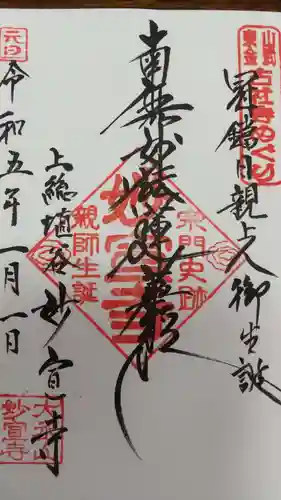 山武
東金
古社寺めぐり
冠鐺日親上人御生誕
南無妙法蓮華経
宗門史跡
妙宣寺
親師生誕
上総埴谷妙宣寺
妙宣寺
元旦
令和五年一月一日